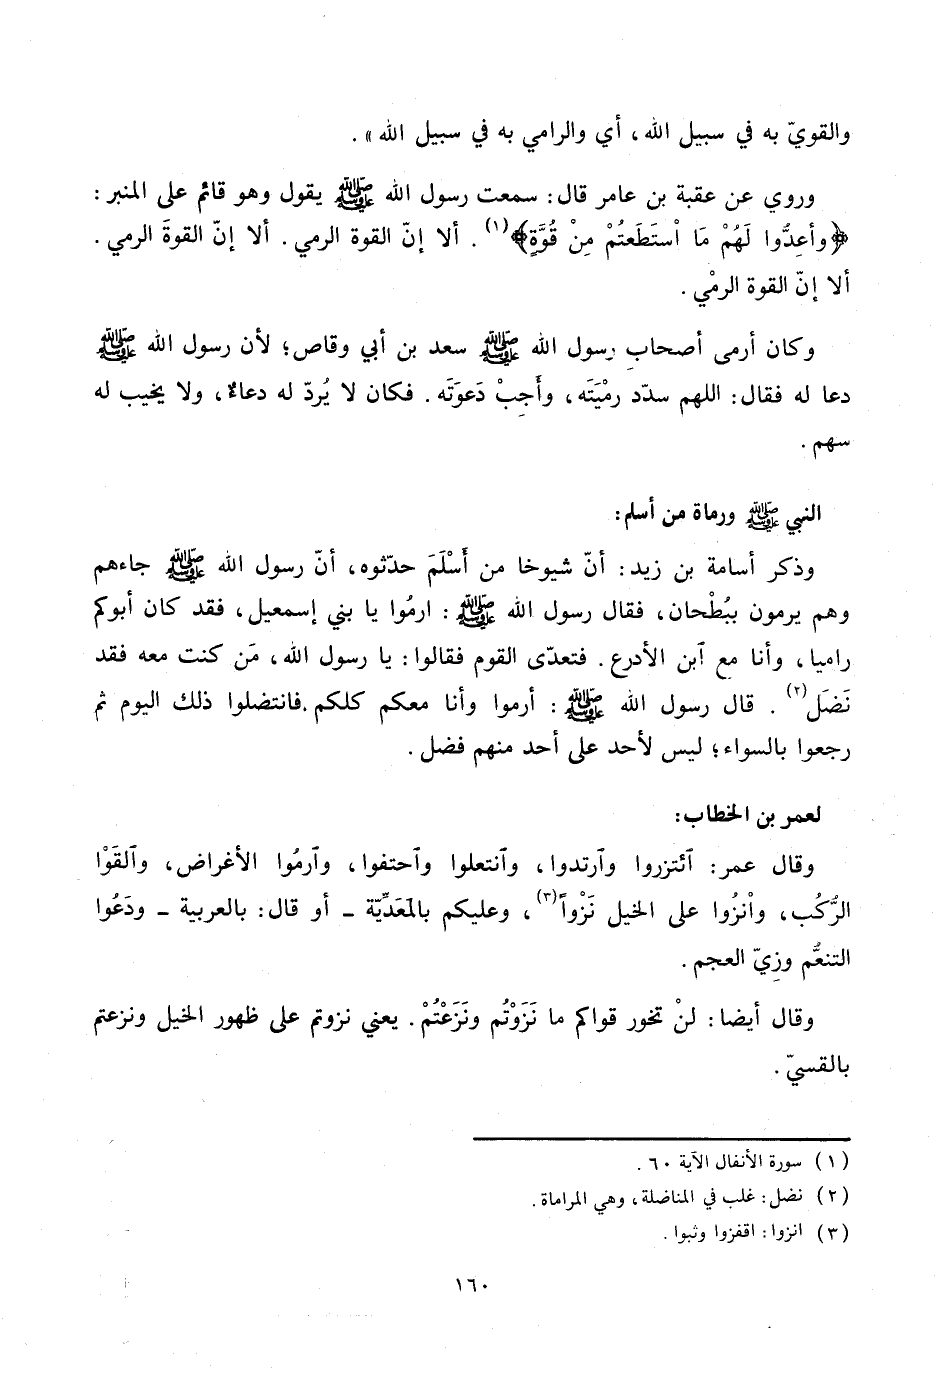 والقويّ به في سبيل الله، أي والرامي به في سبيل الله» .
وروي عن عقبة بن عامر قال: سمعت رسول الله ﷺ يقول وهو قائم على المنبر :
﴿وأعِدُّوا لَهُمْ مَا ٱسْتَطَعتُمْ مِنْ قُوَّةٍ﴾(١) . ألا إنّ القوة الرمي. ألا إنّ القوةَ الرمي .
ألا إنّ القوة الرمْي .
وكان أرمى أصحاب رسول الله ﷺ سعد بن أبي وقاص؛ لأن رسول الله ﷺ
دعا له فقال: اللهم سدّد رمْيَتَه، وأَجِبْ دَعوَتَه . فكان لا يُردّ له دعاءٌ، ولا يخيب له
سهم .
النبي ﷺ ورماة من أسلم:
وذكر أسامة بن زيد: أنّ شيوخا من أَسْلَمَ حدّثوه، أنّ رسول الله ﷺ جاءهم
وهم يرمون ببُطْحان، فقال رسول الله ﷺ : ارمُوا يا بني إسمعيل، فقد كان أبوكم
راميا، وأنا مع ٱبن الأدرع . فتعدّى القوم فقالوا: يا رسول الله، مَن كنت معه فقد
نَضَلَ(٢) . قال رسول الله ﷺ : أرموا وأنا معكم كلكم.فانتضلوا ذلك اليوم ثم
رجعوا بالسواء؛ ليس لأحد على أحد منهم فضل .
لعمر بن الخطاب:
وقال عمر: ٱئتزروا وٱرتدوا، وٱنتعلوا وٱحتفوا، وٱرمُوا الأغراض، وٱلقَوْا
الرُّكُب، وٱنزُوا على الخيل نَزْواً(٣)، وعليكم بالمَعَدِّيّة – أو قال: بالعربية – ودَعُوا
التنعُّم وزِيّ العجم .
وقال أيضا: لنْ تخور قواكم ما نَزَوْتُم ونَزَعْتُمْ. يعني نزوتم على ظهور الخيل ونزعتم
بالقسيّ .
(١) سورة الأنفال الآية ٦٠ .
(٢) نضل: غلب في المناضلة، وهي المراماة .
(٣) انزوا: اقفزوا وثبوا .
١٦٠